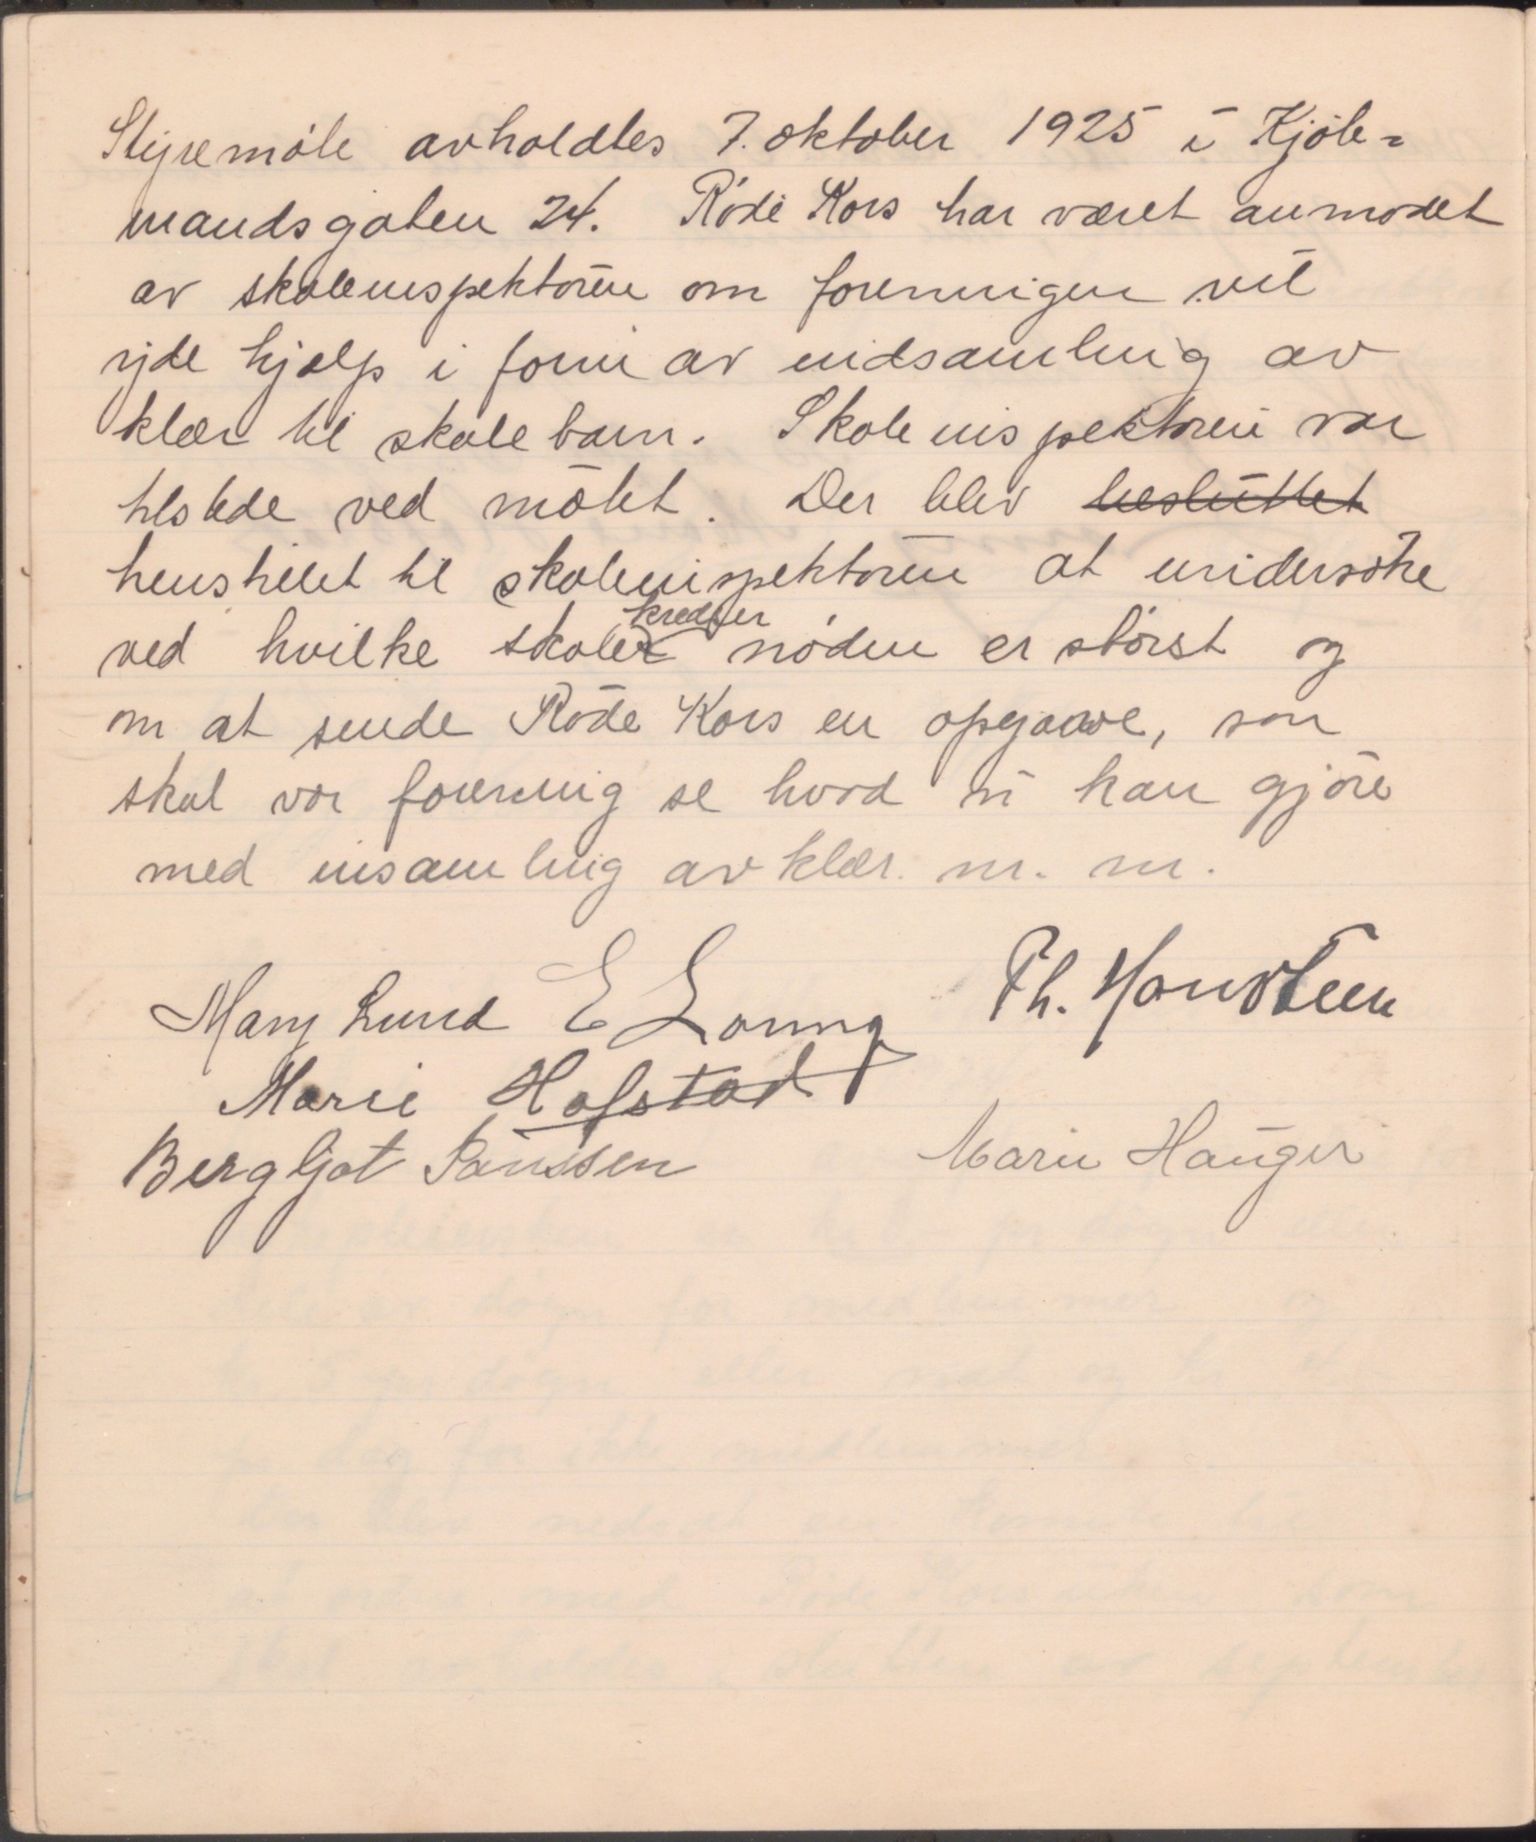 Styremöte avholdtes 7. oktober 1925 i Kjöb-
mandsgaten 24. Röde Kors har været anmodet
av skoleinspektören om foreningen vil
yde hjælp i form av indsamling av
klær til skolebarn. Skoleinspektören var
tilstede ved mötet. Der blev besluttet
henstillet til skoleinspektören at undersöke
ved hvilke skolekredser nöden er störst og
om at sende Röde Kors en opgave, son
skal vor forening se hvad vi kan gjöre
med insamling av klær. m. m.
Mary Lund E Lorung Th. Hansteen
Marie Hofstad
Bergljot Paussen Marie Hauger